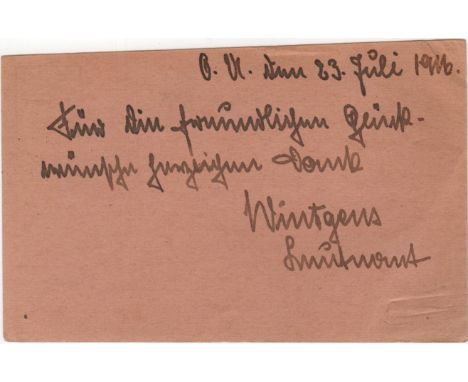 O. U. den 23. Juli 1916.
Für die freundlichen Glück-
wünsche herzlichen Dank
Wintgens
Leutnant